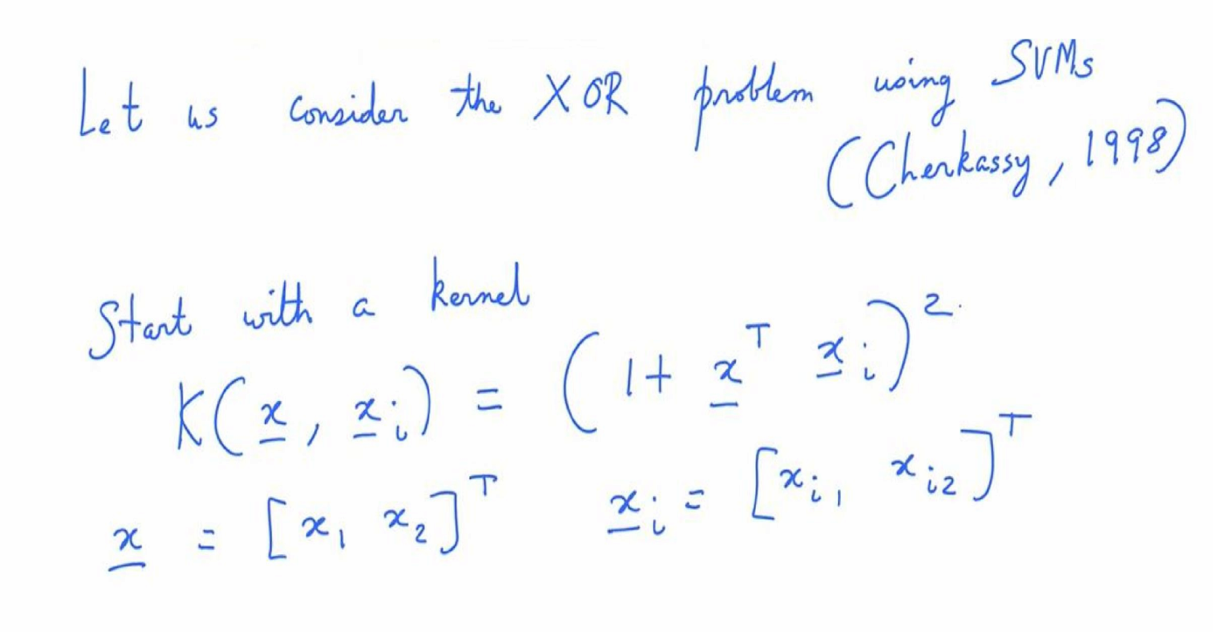 Let us consider the XOR problem using SVMs
(Cherkassy, 1998)
Start with a kernel
K(x, x_i) = (1 + x^T x_i)^2.
x = [x_1 x_2]^T x_i = [x_{i1} x_{i2}]^T